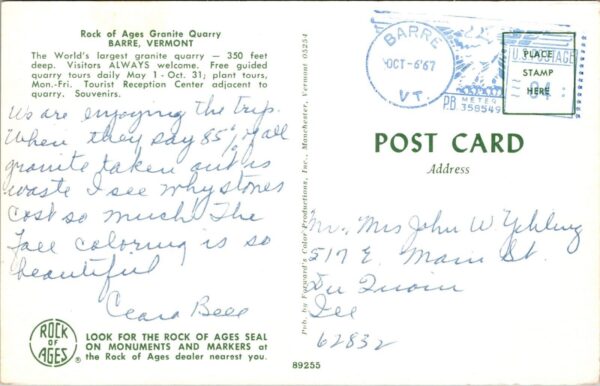 Rock of Ages Granite Quarry
BARRE, VERMONT
The World's largest granite quarry — 350 feet
deep. Visitors ALWAYS welcome. Free guided
quarry tours daily May 1 - Oct. 31; plant tours,
Mon.-Fri. Tourist Reception Center adjacent to
quarry. Souvenirs.
We are enjoying the trip.
When they say 85% of all
granite taken out is
waste I see why stones
cost so much. The
Fall coloring is so
beautiful
Clara Bell
ROCK
OF
AGES
®
LOOK FOR THE ROCK OF AGES SEAL
ON MONUMENTS AND MARKERS at
the Rock of Ages dealer nearest you.
Pub. by Forward's Color Productions, Inc., Manchester, Vermont 05254
89255
BARRE
OCT-6'67
VT
U.S. POSTAGE
04
P.B. METER
358549
PLACE
STAMP
HERE
POST CARD
Address
Mr. Mrs John W
517 E. Main St.
Du Quoin
Ill
62832